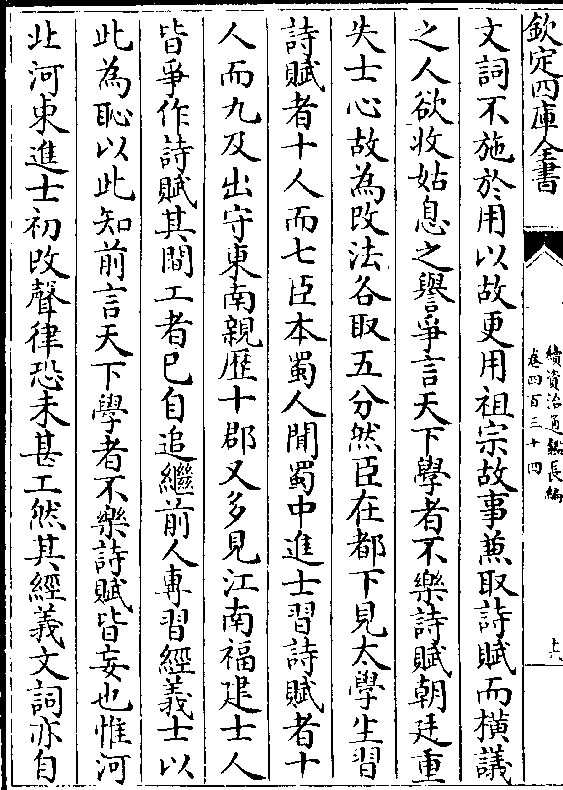 欽定四庫全書
續資治通鑑長編
卷四百三十四
文詞不施於用以故更用祖宗故事兼取詩賦而橫議
之人欲收姑息之譽爭言天下學者不樂詩賦朝廷重
失士心故為改法各取五分然臣在都下見太學生習
詩賦者十人而七臣本蜀人聞蜀中進士習詩賦者十
人而九及出守東南親歷十郡又多見江南福建士人
皆爭作詩賦其間工者已自追繼前人專習經義士以
此為恥以此知前言天下學者不樂詩賦皆妄也惟河
北河東進士初改聲律恐未甚工然其經義文詞亦自